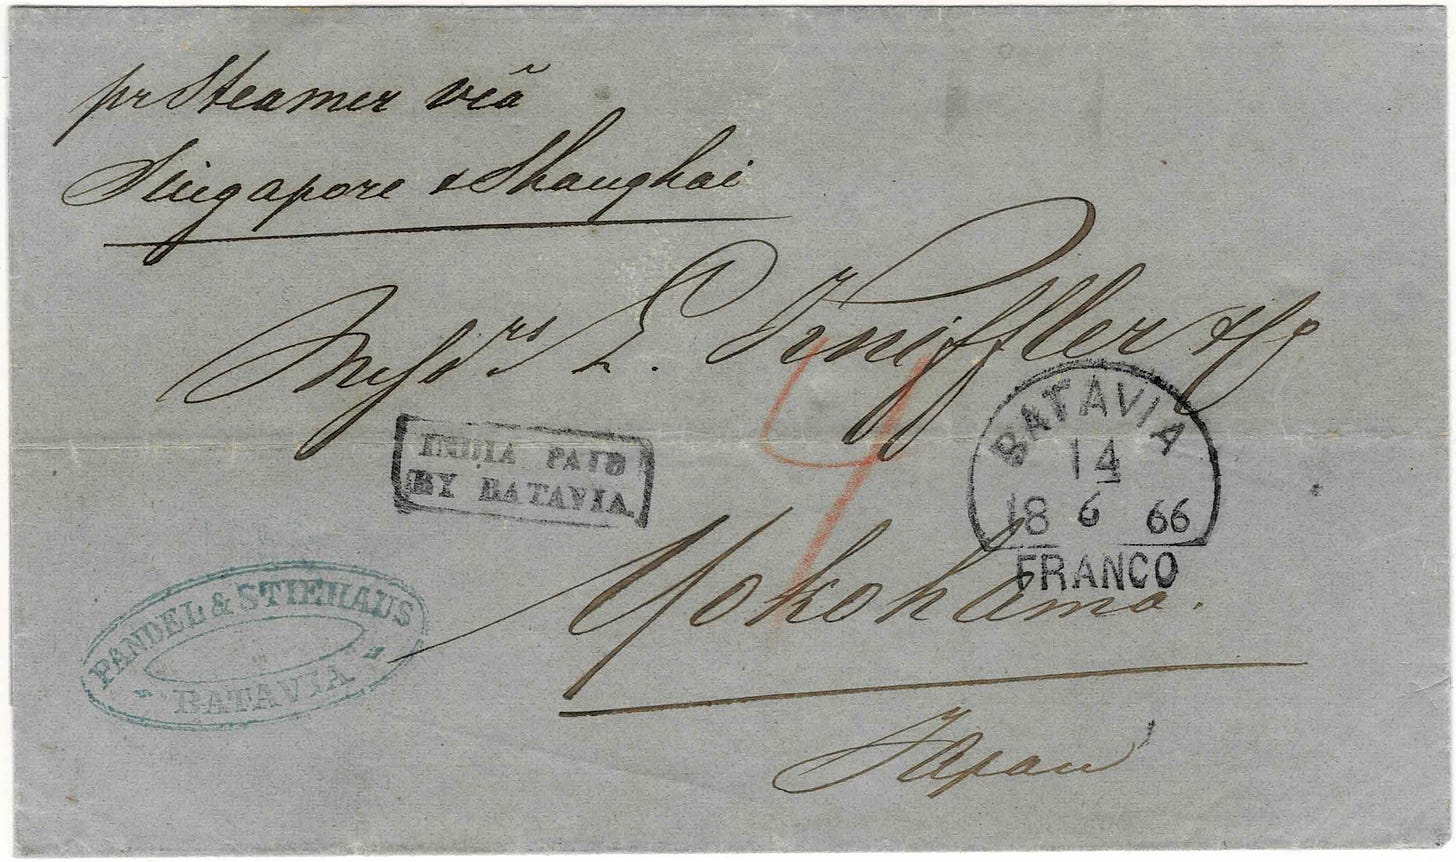 pr Steamer viã
Singapore & Shanghai
Messrs L. Kniffler & Co
INDIA PAID
BY BATAVIA
4
BATAVIA
14
18 6 66
FRANCO
Yokohama.
Japan
PANDEL & STIEHAUS
BATAVIA